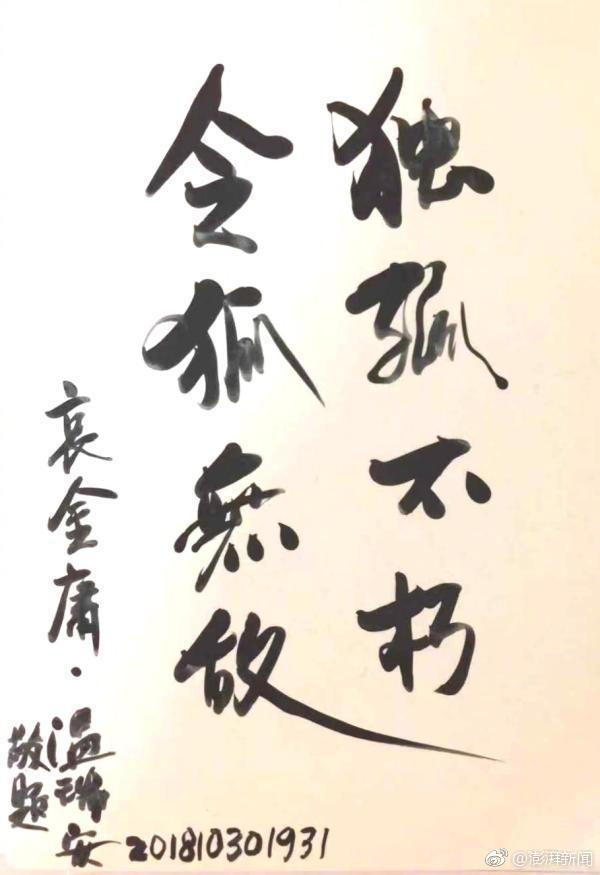 独孤不朽
令狐無敌
哀金庸·温瑞安
敬题
201810301931
@澎湃新闻